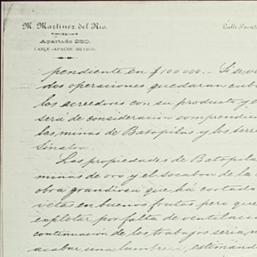 M. Martinez del Rio.
Apartado 250.
CABLE-APACHE-MEXICO.
Calle
pendiente en $100000.. Si
dos operaciones quedaran
los acreedores con su producto y
será de consideracion
las minas de Batopilas y los
Sinaloa
Las propiedades de
minas de oro y el socabon de la
obra grandiosa que há costado
vetas en buenos frutos pero que
explotar por falta de
continuacion de los trabajos seria
acabar una lumbrera,